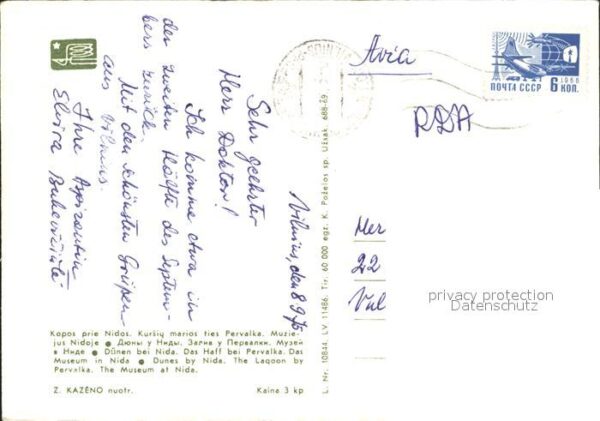 Vilnius, den 8.9.76
Sehr geehrter
Herr Doktor!
Ich komme etwa in
der zweiten Hälfte des Septem-
bers zurück.
Mit den schönsten Grüßen
aus Vilnius.
Ihre Aspirantin
Elvira
Kopos prie Nidos. Kuršių marios ties Pervalka. Muzie-
jus Nidoje ● Дюны у Ниды. Залив у Первалки. Музей
в Ниде ● Dünen bei Nida. Das Haff bei Pervalka. Das
Museum in Nida ● Dunes by Nida. The Lagoon by
Pervalka. The Museum at Nida.
Z. KAZĖNO nuotr. Kaina 3 kp
L. Nr. 10844. LV 11486. Tir. 60 000 egz. K. Poželos sp. Užsak. 688-69
Avia
ПОЧТА СССР 1966 6 КОП.
RDA
Her
22
Vul
privacy protection
Datenschutz